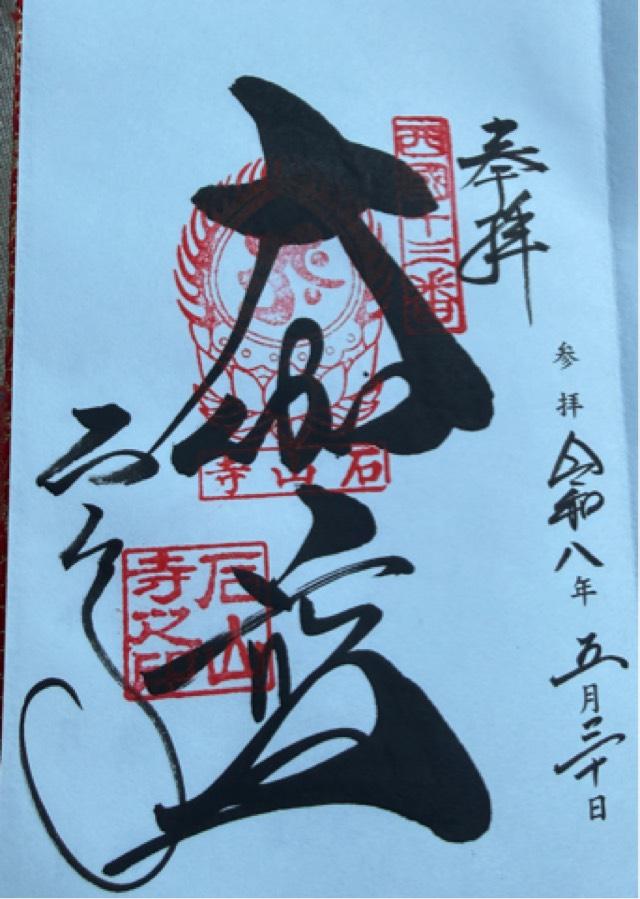 奉拝
参拝 令和八年 五月三十日
西國十三番
大伽藍
石山寺
石山寺之印
石山寺